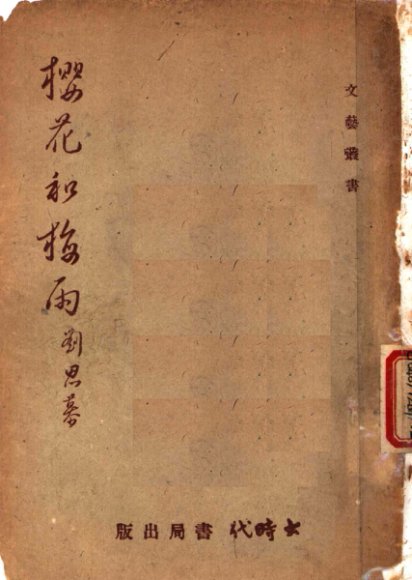 文藝叢書
櫻花和梅雨
劉思慕
大時代書局出版